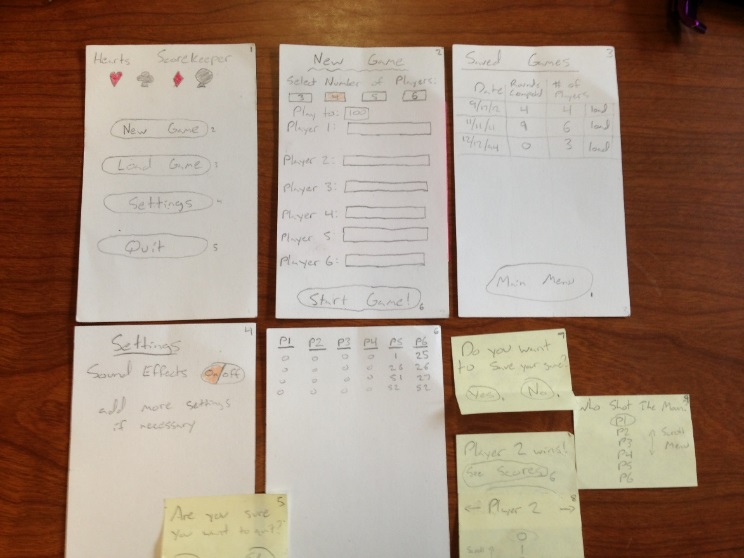 1
Hearts Scorekeeper
New Game 2
Load Game 3
Settings 4
Quit 5
2
New Game
Select Number of Players:
3 4 5 6
Play to: 100
Player 1:
Player 2:
Player 3:
Player 4:
Player 5
Player 6:
Start Game! 6
3
Saved Games
Date Rounds Completed # of Players
4 4 load
11/11/11 9 6 load
12/12/04 0 3 load
Main Menu 1
4
Settings
Sound Effects On/Off
add more settings
if necessary
5
Are you sure
you want to quit?
6
P1 P2 P3 P4 P5 P6
0 0 0 0 1 25
0 0 0 0 26 26
0 0 0 0 51 27
0 0 0 0 52 52
7
Do you want
to save your game?
Yes No
Who Shot The Moon?
P1
P2
P3
P4
P5
P6
Scroll
Menu
Player 2 wins!
See Scores 6
← Player 2 →
0
1